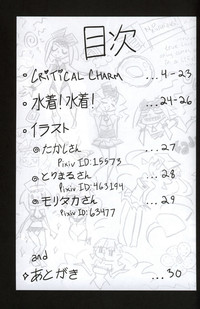 目次
。CRiTiCAL CHARM ...4-23
。水着！水着！ ...24-26
。イラスト
◎たかしさん ...27
Pixiv ID:15573
◎とりまるさん ...28
Pixiv ID:463194
◎モリタカさん ...29
Pixiv ID:63477
and
◇あとがき ...30